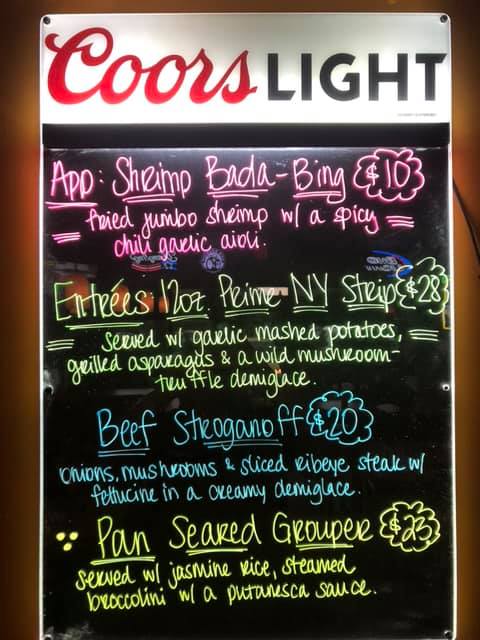 Coors LIGHT
App: Shrimp Bada-Bing $10
fried jumbo shrimp w/ a spicy
chili garlic aioli.
Entrées: 12oz Prime NY Strip $28
served w/ garlic mashed potatoes,
grilled asparagus & a wild mushroom-
truffle demiglace.
Beef Stroganoff $20
onions, mushrooms & sliced ribeye steak w/
fettucine in a creamy demiglace.
Pan Seared Grouper $23
served w/ jasmine rice, steamed
broccolini w/ a putanesca sauce.